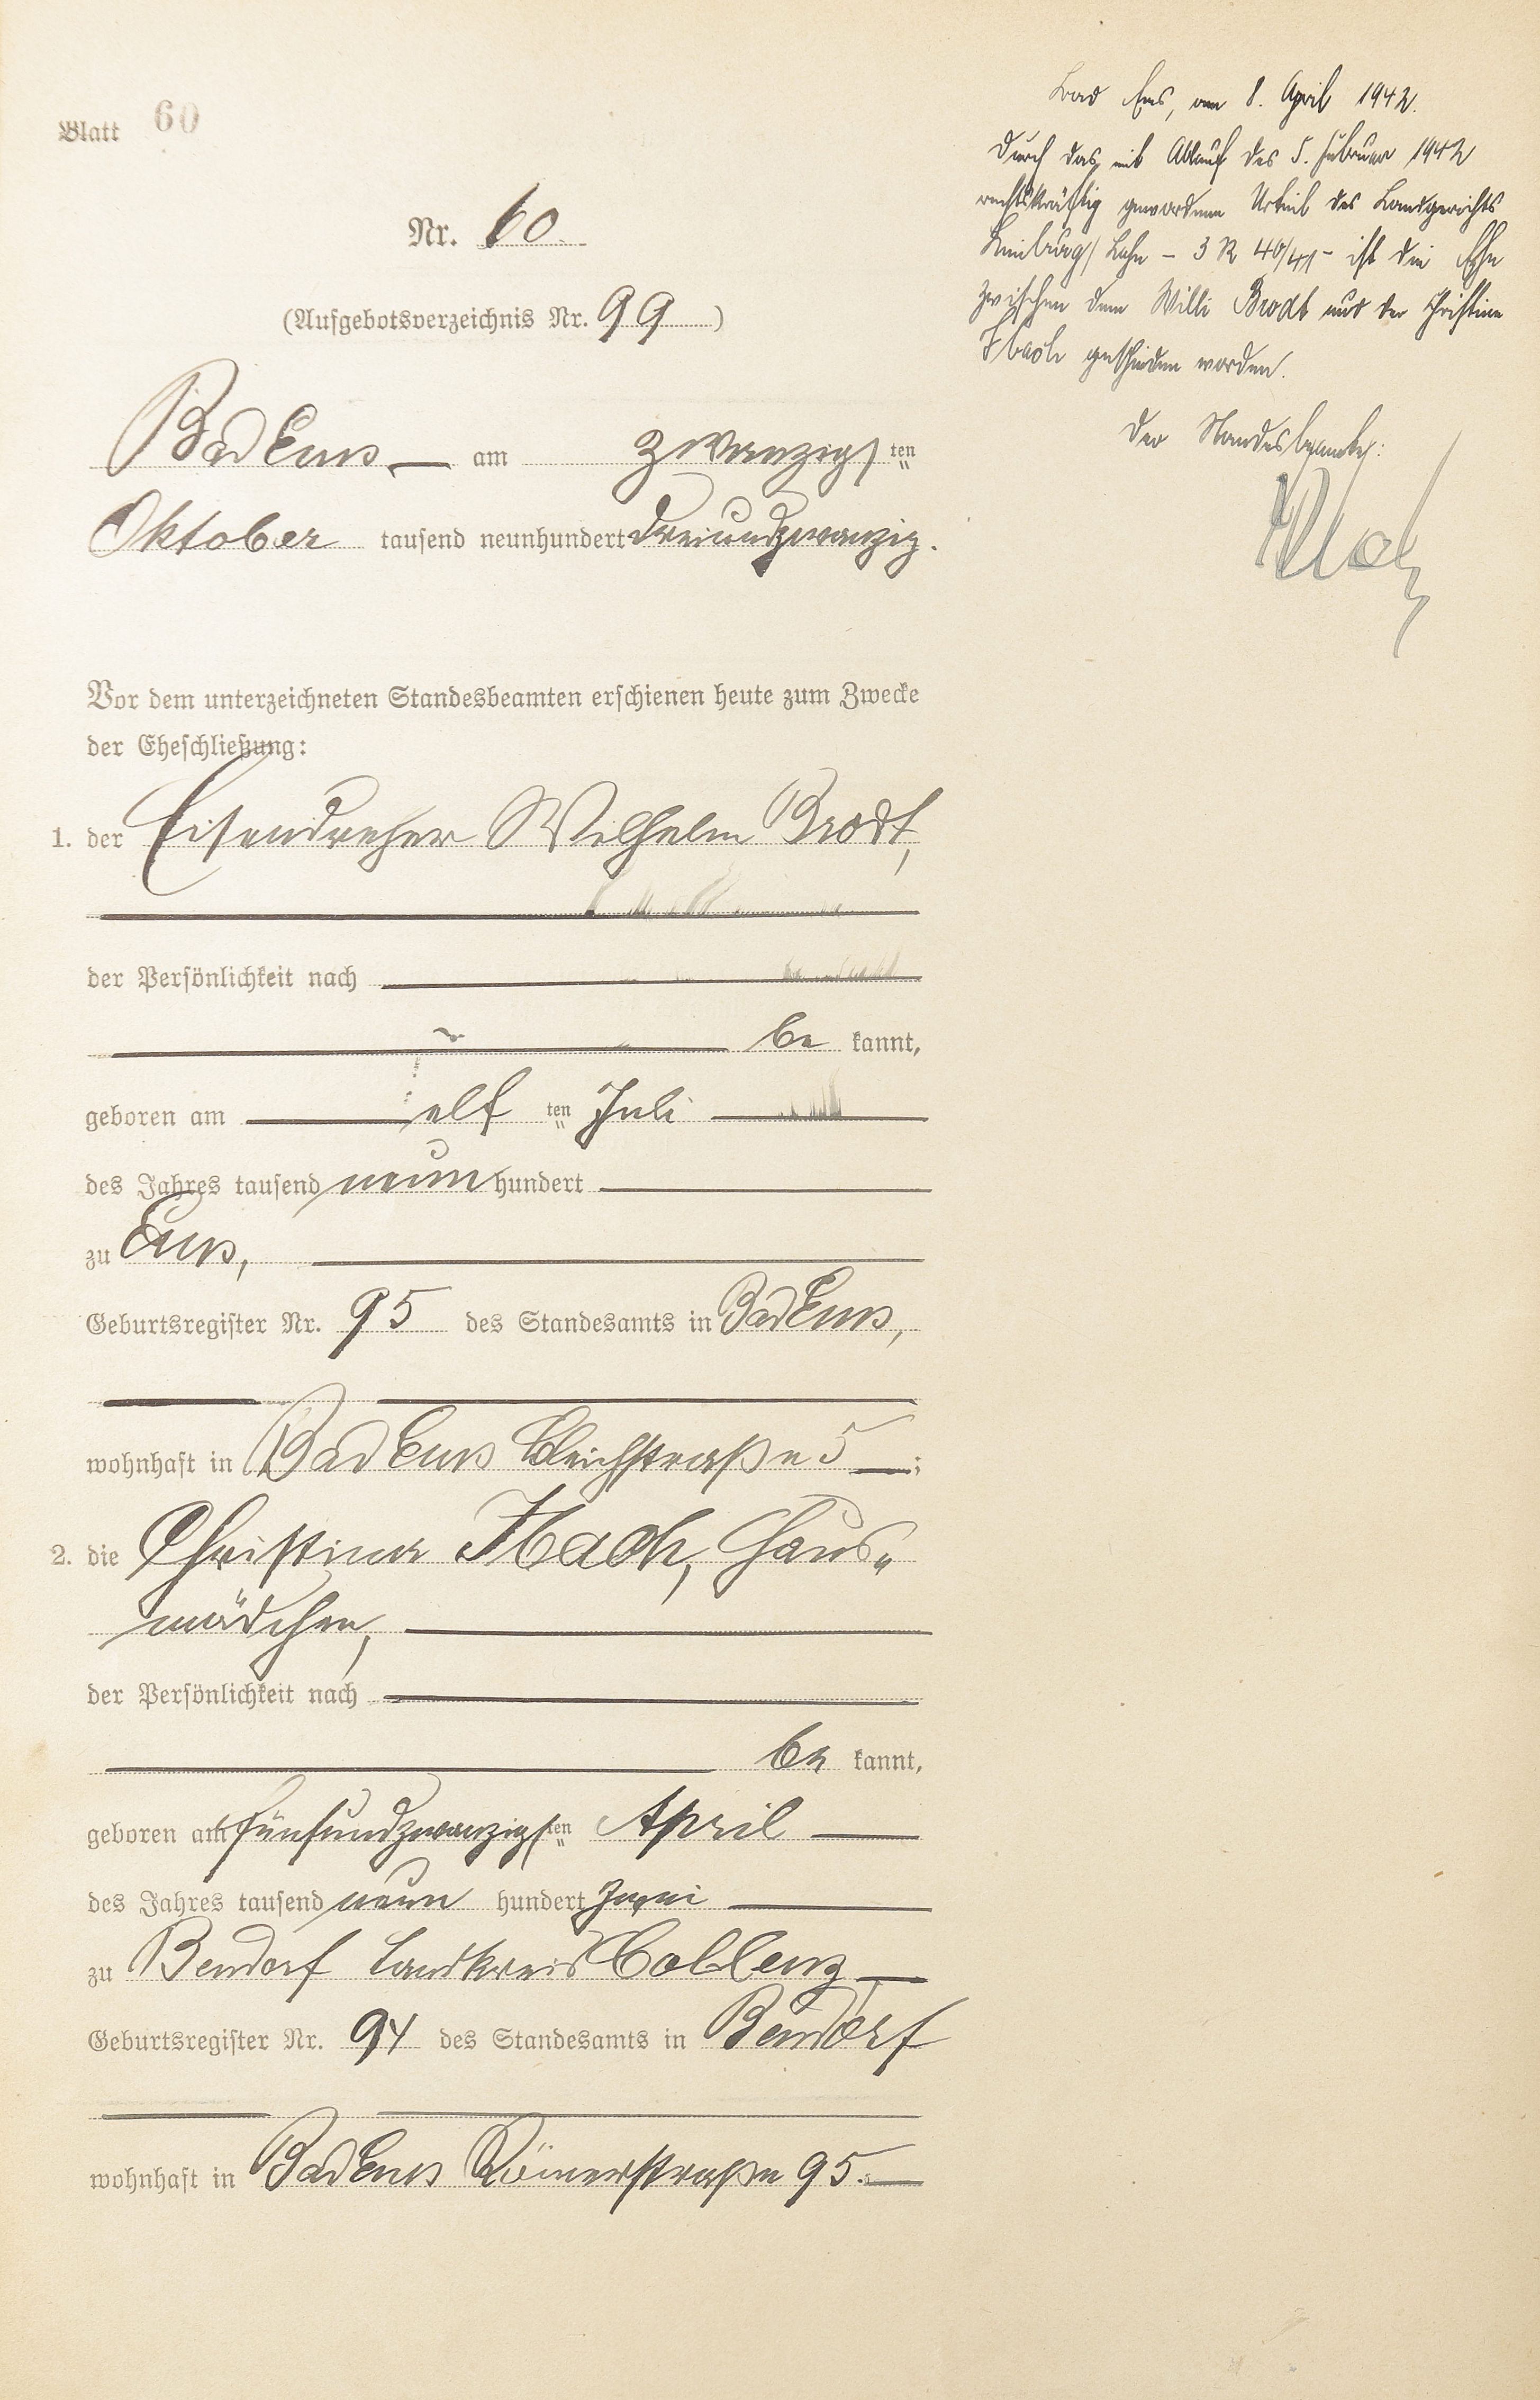 Blatt 60
Nr. 60
(Aufgebotsverzeichnis Nr. 99)
Bad Ems am zwanzigsten
Oktober tausend neunhundert dreiundzwanzig.
Vor dem unterzeichneten Standesbeamten erschienen heute zum Zwecke
der Eheschließung:
1. der Eisendreher Wilhelm Brodt,
der Persönlichkeit nach
be kannt,
geboren am elf ten Juli
des Jahres tausend neun hundert
zu Ems,
Geburtsregister Nr. 95 des Standesamts in Bad Ems,
wohnhaft in Bad Ems Bleichstraße 5;
2. die Christina Ibach, Haus„
mädchen,
der Persönlichkeit nach
be kannt,
geboren am fünfundzwanzigsten April
des Jahres tausend neun hundert zwei
zu Bendorf Landkreis Coblenz
Geburtsregister Nr. 94 des Standesamts in Bendorf
wohnhaft in Bad Ems Römerstraße 95.
Bad Ems, am 8. April 1942.
Durch das, mit Ablauf des 5. Februar 1942
rechtskräftig gewordene Urteil des Landgerichts
Limburg/Lahn - 3 R 40/41 - ist die Ehe
zwischen dem Willi Brodt und der Christine
Ibach geschieden worden.
Der Standesbeamte: